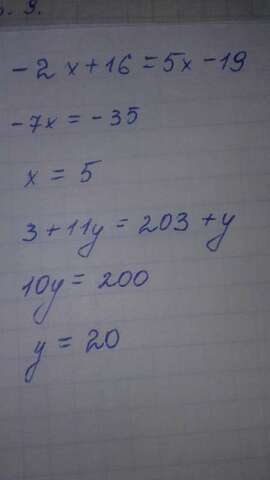 9.
-2x+16=5x-19
-7x=-35
x=5
3+11y=203+y
10y=200
y=20